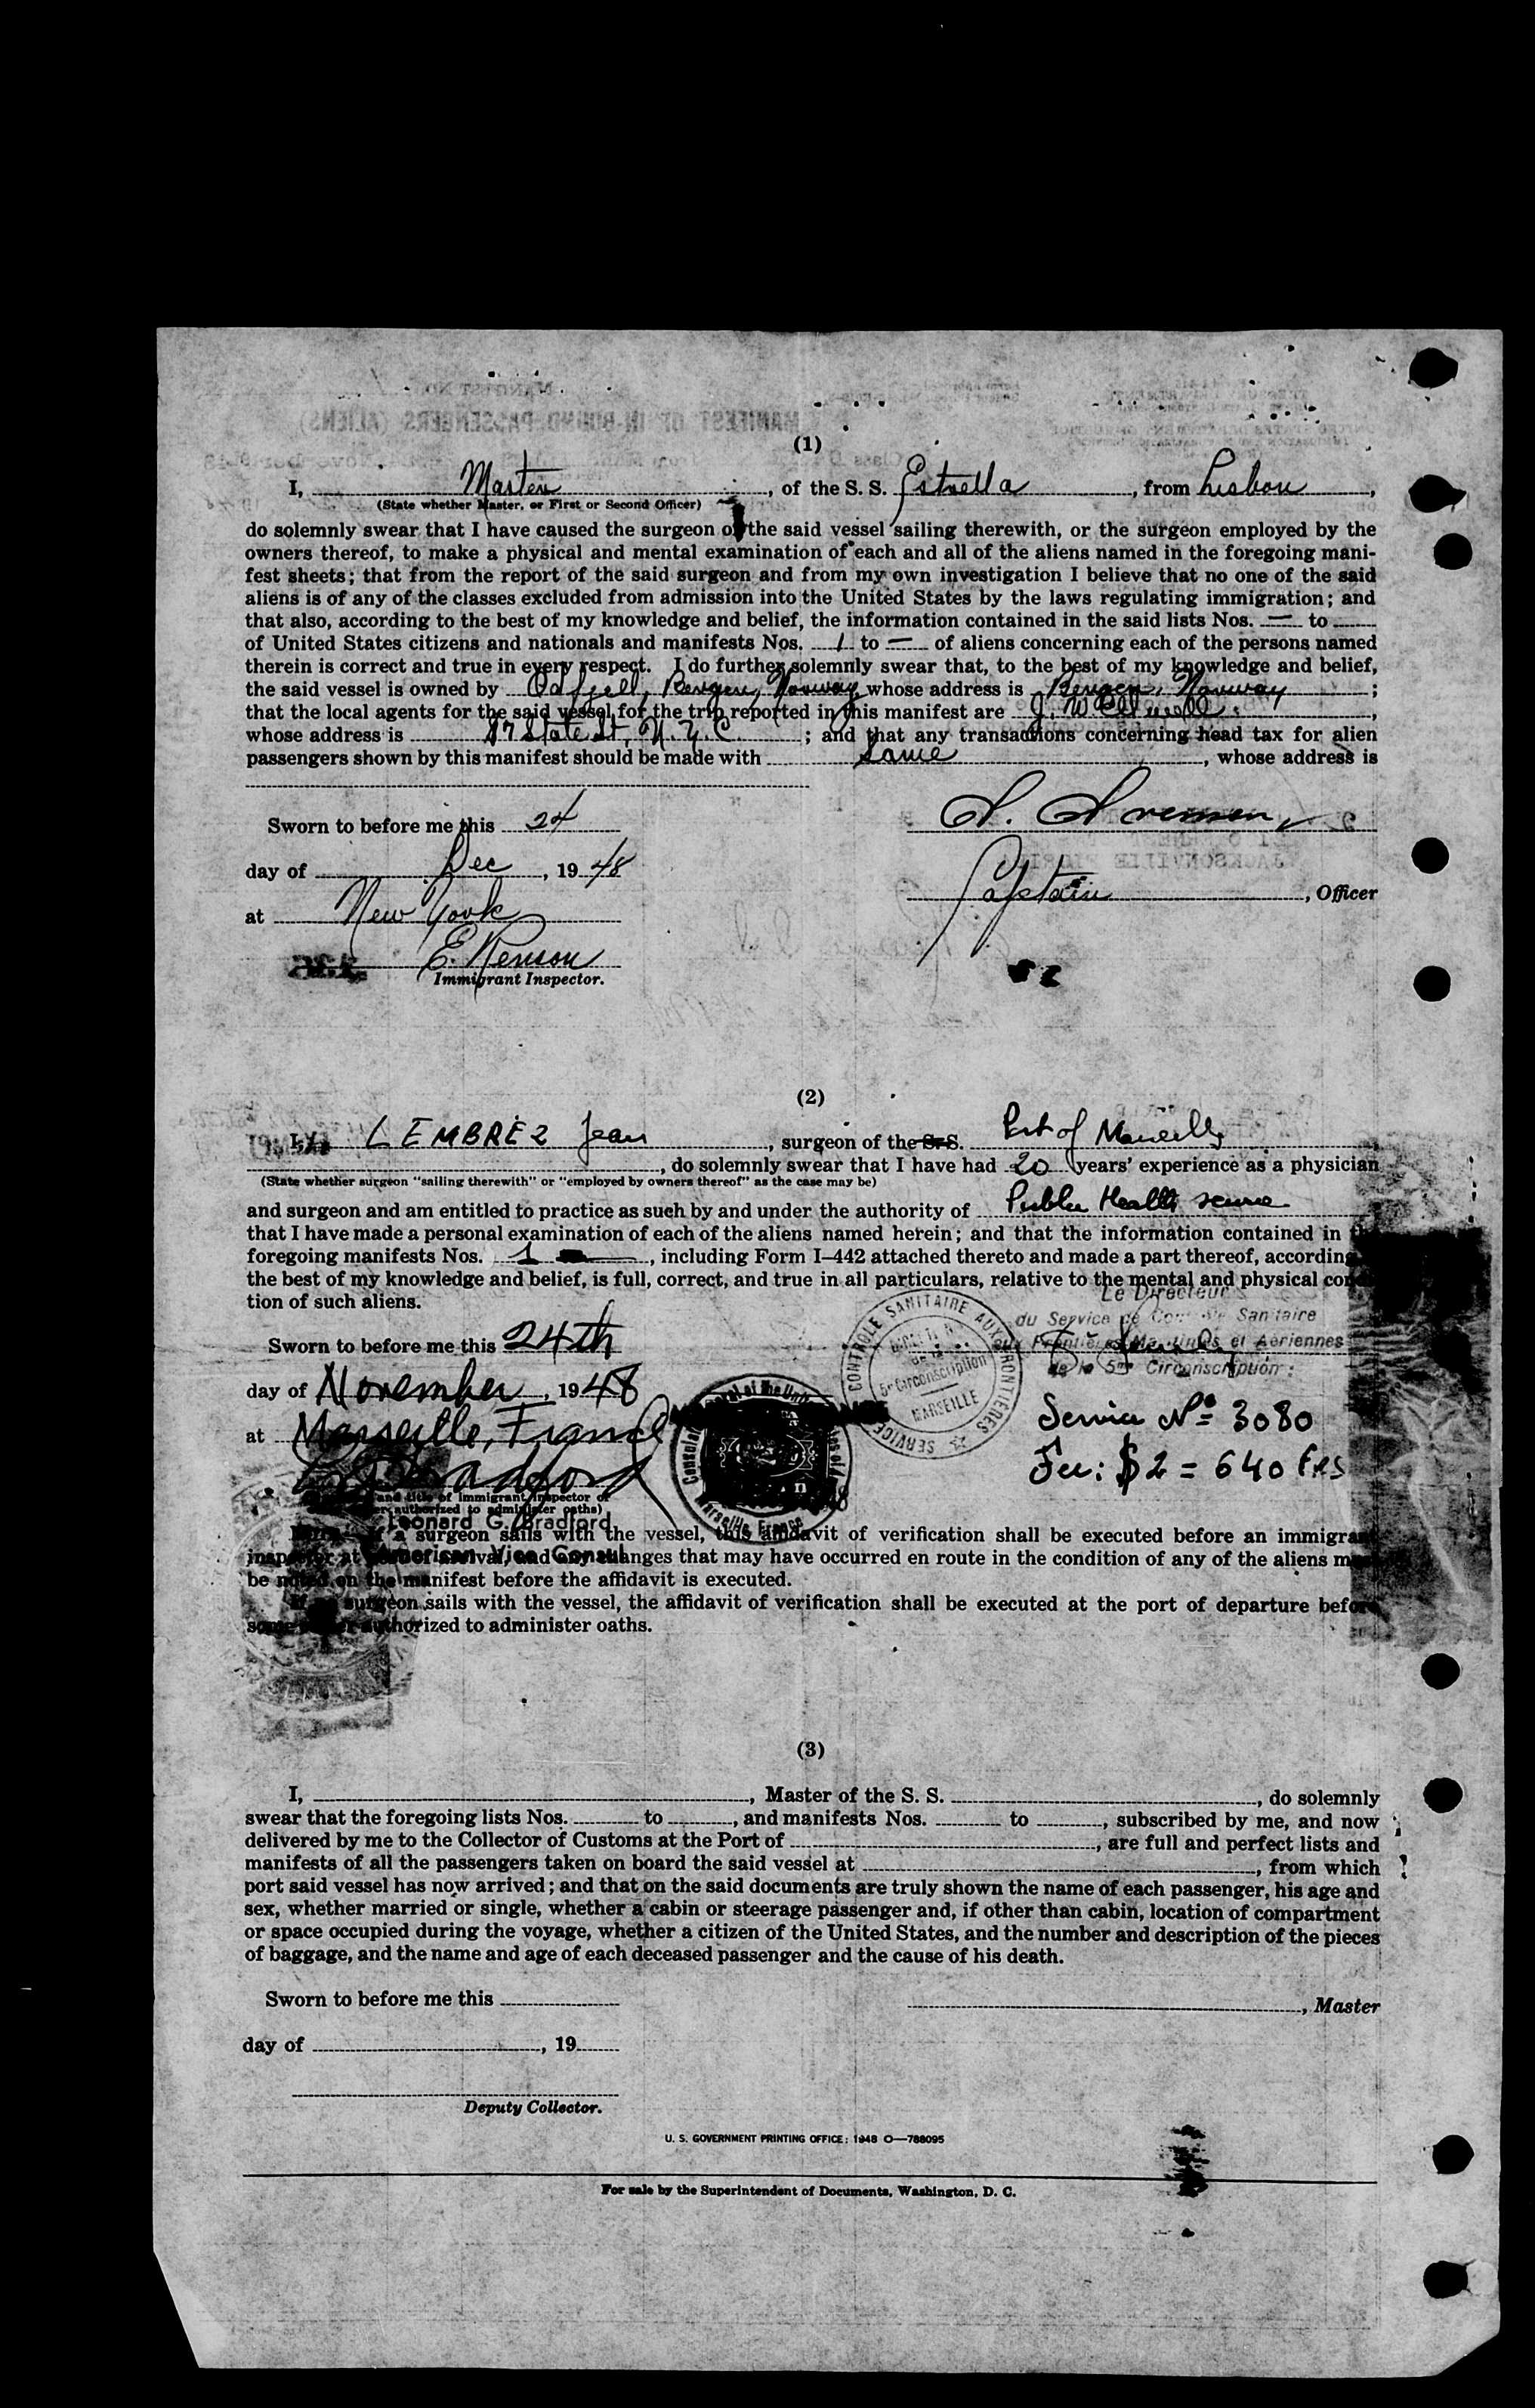 (1)
I, Master, of the S. S. Estrella, from Lisbon,
(State whether Master, or First or Second Officer)
do solemnly swear that I have caused the surgeon of the said vessel sailing therewith, or the surgeon employed by the
owners thereof, to make a physical and mental examination of each and all of the aliens named in the foregoing mani-
fest sheets; that from the report of the said surgeon and from my own investigation I believe that no one of the said
aliens is of any of the classes excluded from admission into the United States by the laws regulating immigration; and
that also, according to the best of my knowledge and belief, the information contained in the said lists Nos. — to
of United States citizens and nationals and manifests Nos. 1 to — of aliens concerning each of the persons named
therein is correct and true in every respect. I do further solemnly swear that, to the best of my knowledge and belief,
the said vessel is owned by Odfjell, Bergen, Norway whose address is Bergen, Norway;
that the local agents for the said vessel for the trip reported in this manifest are J. W.
whose address is 17 State St, N. Y. C.; and that any transactions concerning head tax for alien
passengers shown by this manifest should be made with same, whose address is
Sworn to before me this 24
day of Dec, 1948
at New York
Captain, Officer
E. Kenson
Immigrant Inspector.
(2)
LEMBREZ Jean, surgeon of the S. S. Port of Marseille
, do solemnly swear that I have had 20 years' experience as a physician
(State whether surgeon "sailing therewith" or "employed by owners thereof" as the case may be)
and surgeon and am entitled to practice as such by and under the authority of Public Health
that I have made a personal examination of each of the aliens named herein; and that the information contained in the
foregoing manifests Nos. 1, including Form I-442 attached thereto and made a part thereof, according
the best of my knowledge and belief, is full, correct, and true in all particulars, relative to the mental and physical cond
tion of such aliens.
Le Directeur
du Service de Contrôle Sanitaire
aux Frontières Maritimes et Aériennes
de la 5me Circonscription:
SERVICE CONTROLE SANITAIRE AUX FRONTIERES
5e Circonscription
MARSEILLE
Sworn to before me this 24th
day of November, 1948
at Marseille, France
Service No 3080
Fee: $2 = 640 frs
Marseille, France
and title of Immigrant Inspector or
authorized to administer oaths)
Leonard G. Bradford
American Vice Consul
a surgeon sails with the vessel, this affidavit of verification shall be executed before an immigrant
inspector at arrival, and any changes that may have occurred en route in the condition of any of the aliens
be noted on the manifest before the affidavit is executed.
surgeon sails with the vessel, the affidavit of verification shall be executed at the port of departure before
authorized to administer oaths.
(3)
I, , Master of the S. S. , do solemnly
swear that the foregoing lists Nos. to , and manifests Nos. to , subscribed by me, and now
delivered by me to the Collector of Customs at the Port of , are full and perfect lists and
manifests of all the passengers taken on board the said vessel at , from which
port said vessel has now arrived; and that on the said documents are truly shown the name of each passenger, his age and
sex, whether married or single, whether a cabin or steerage passenger and, if other than cabin, location of compartment
or space occupied during the voyage, whether a citizen of the United States, and the number and description of the pieces
of baggage, and the name and age of each deceased passenger and the cause of his death.
Sworn to before me this
, Master
day of , 19
Deputy Collector.
U. S. GOVERNMENT PRINTING OFFICE: 1948 O—788095
For sale by the Superintendent of Documents, Washington, D. C.